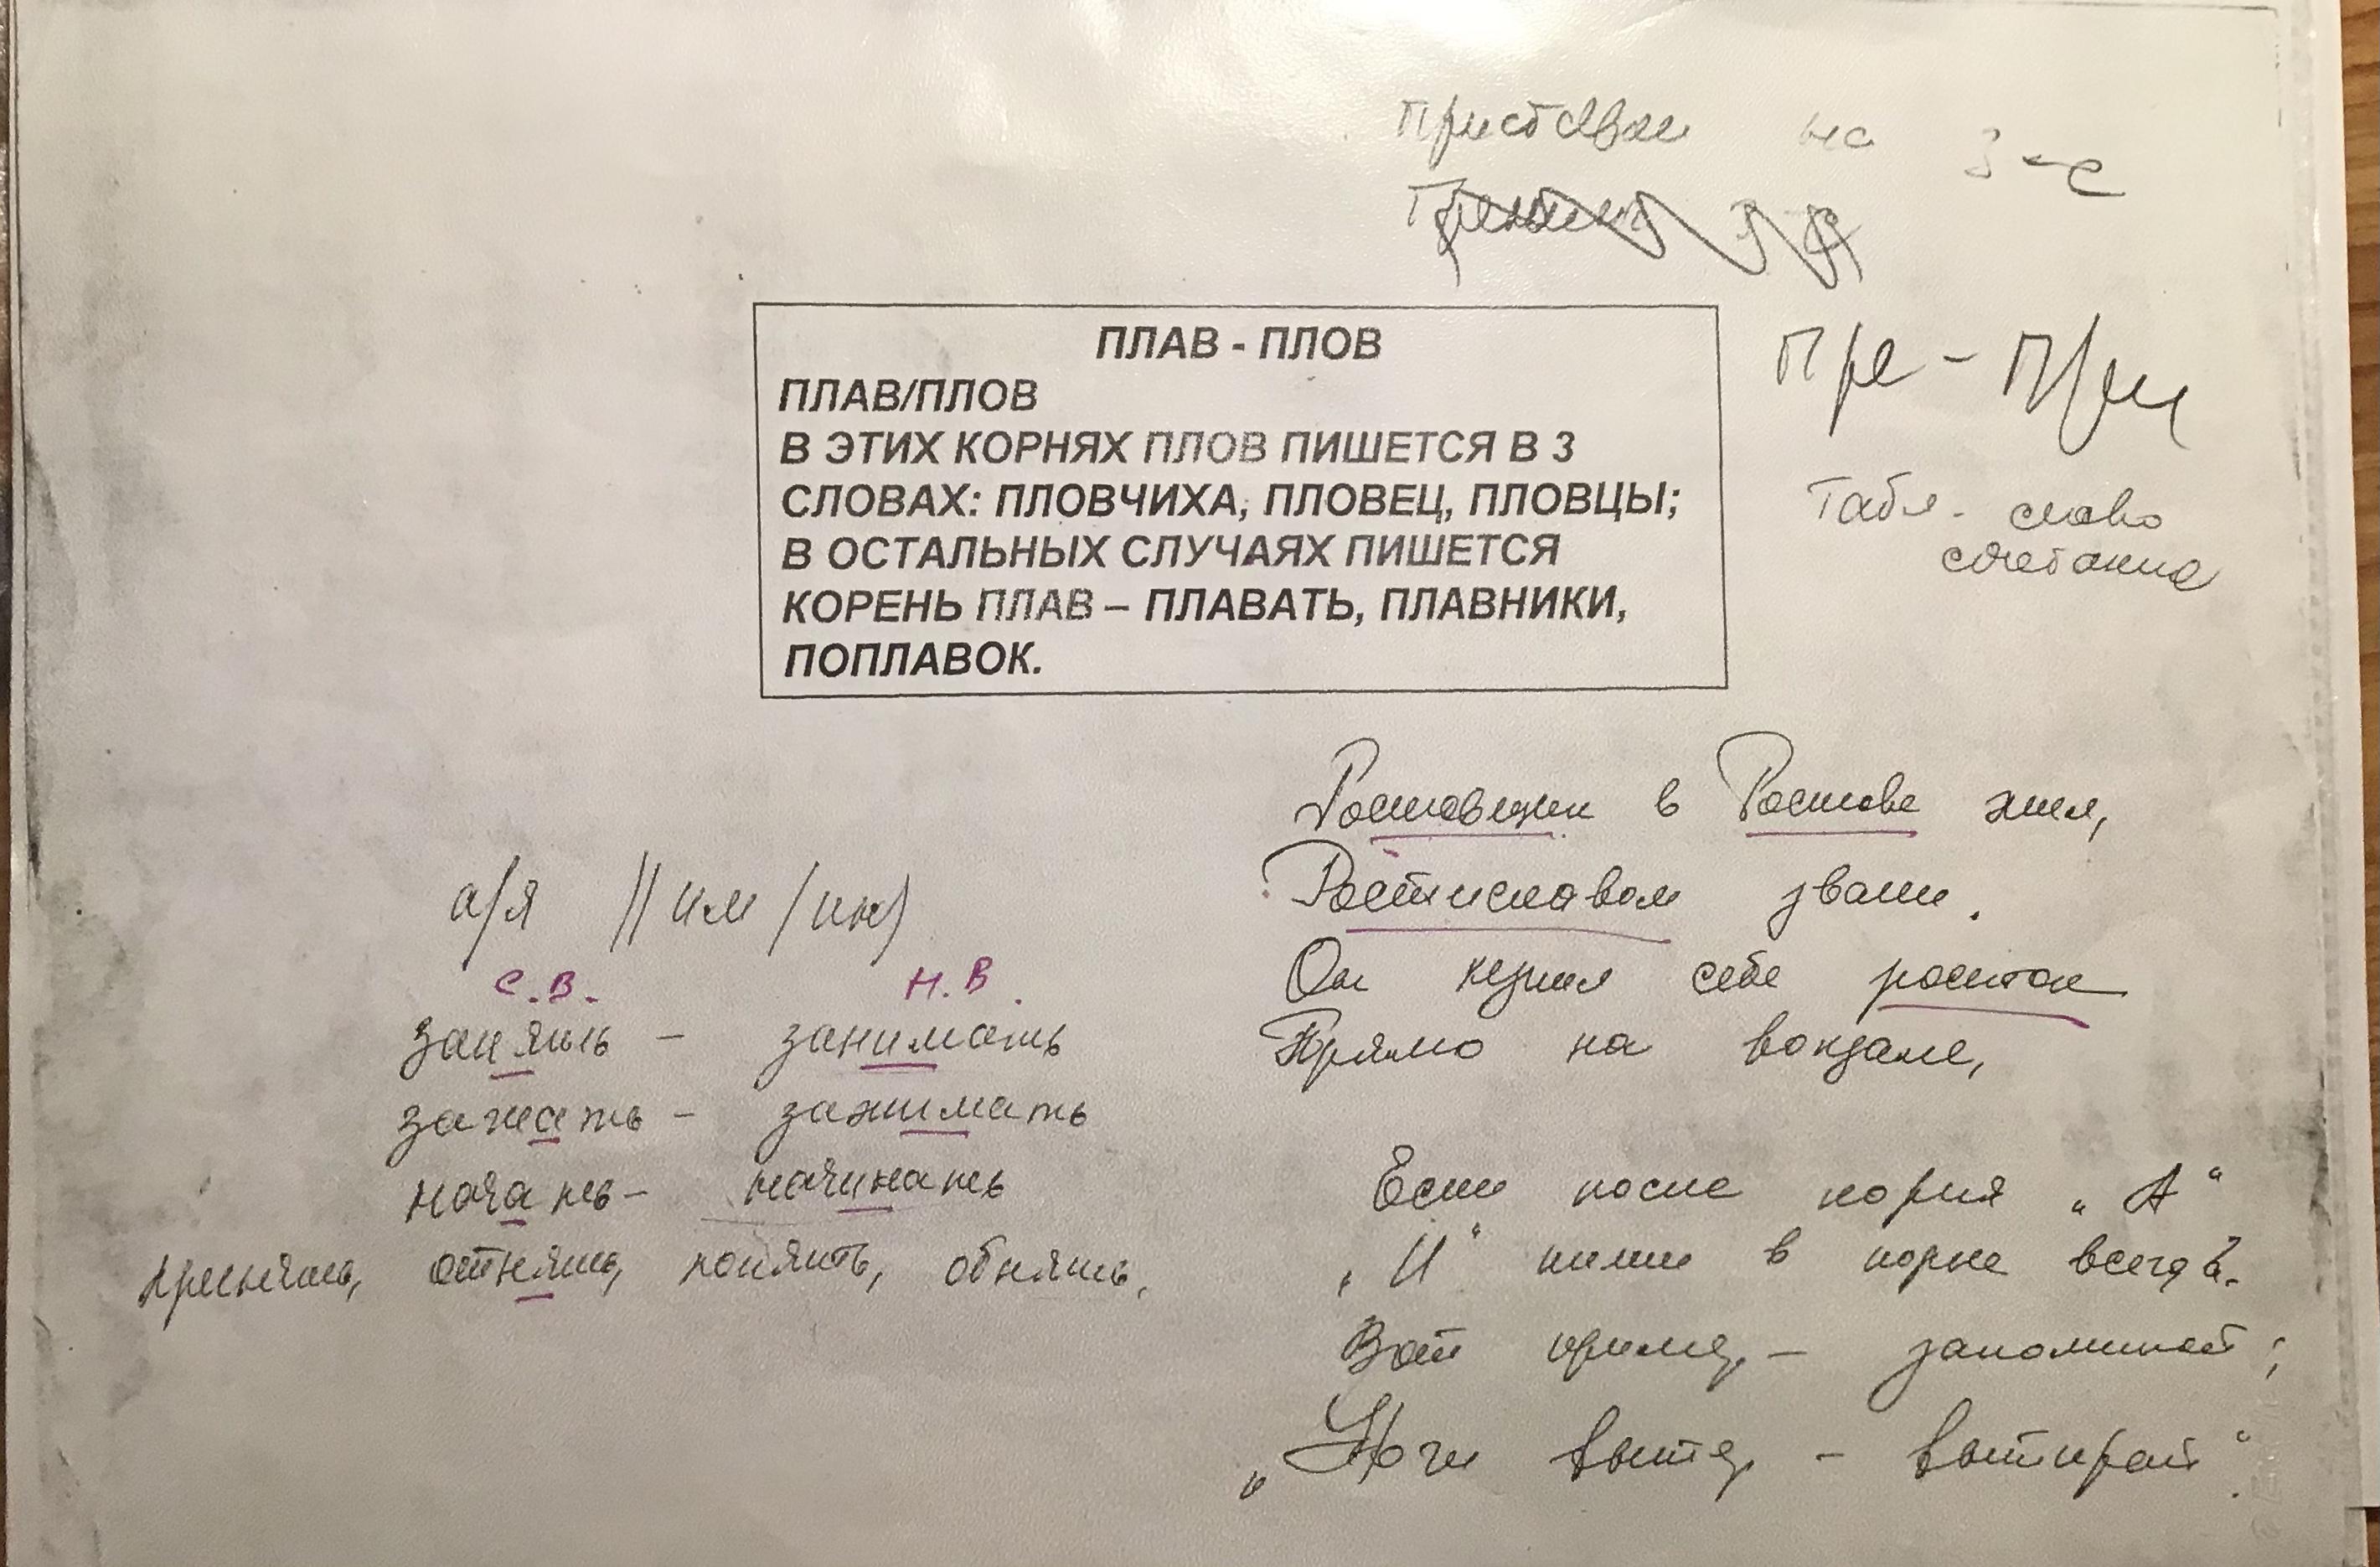 Приставки на з-с
Пре - При
ПЛАВ - ПЛОВ
ПЛАВ/ПЛОВ
В ЭТИХ КОРНЯХ ПЛОВ ПИШЕТСЯ В 3
СЛОВАХ: ПЛОВЧИХА, ПЛОВЕЦ, ПЛОВЦЫ;
В ОСТАЛЬНЫХ СЛУЧАЯХ ПИШЕТСЯ
КОРЕНЬ ПЛАВ – ПЛАВАТЬ, ПЛАВНИКИ,
ПОПЛАВОК.
Табл. слово
сочетания
Ростовщик в Ростове жил,
Ростиславом звали.
Он купил себе росток
Прямо на вокзале,
а/я // им /ин/
С.В. Н.В.
занять - занимать
зажать - зажимать
начать - начинать
принять, отнять, понять, обнять,
Если после корня „А“
„И“ пиши в корне всегда.
Вот пример - запоминай:
„Ноги вытер - вытирай“.